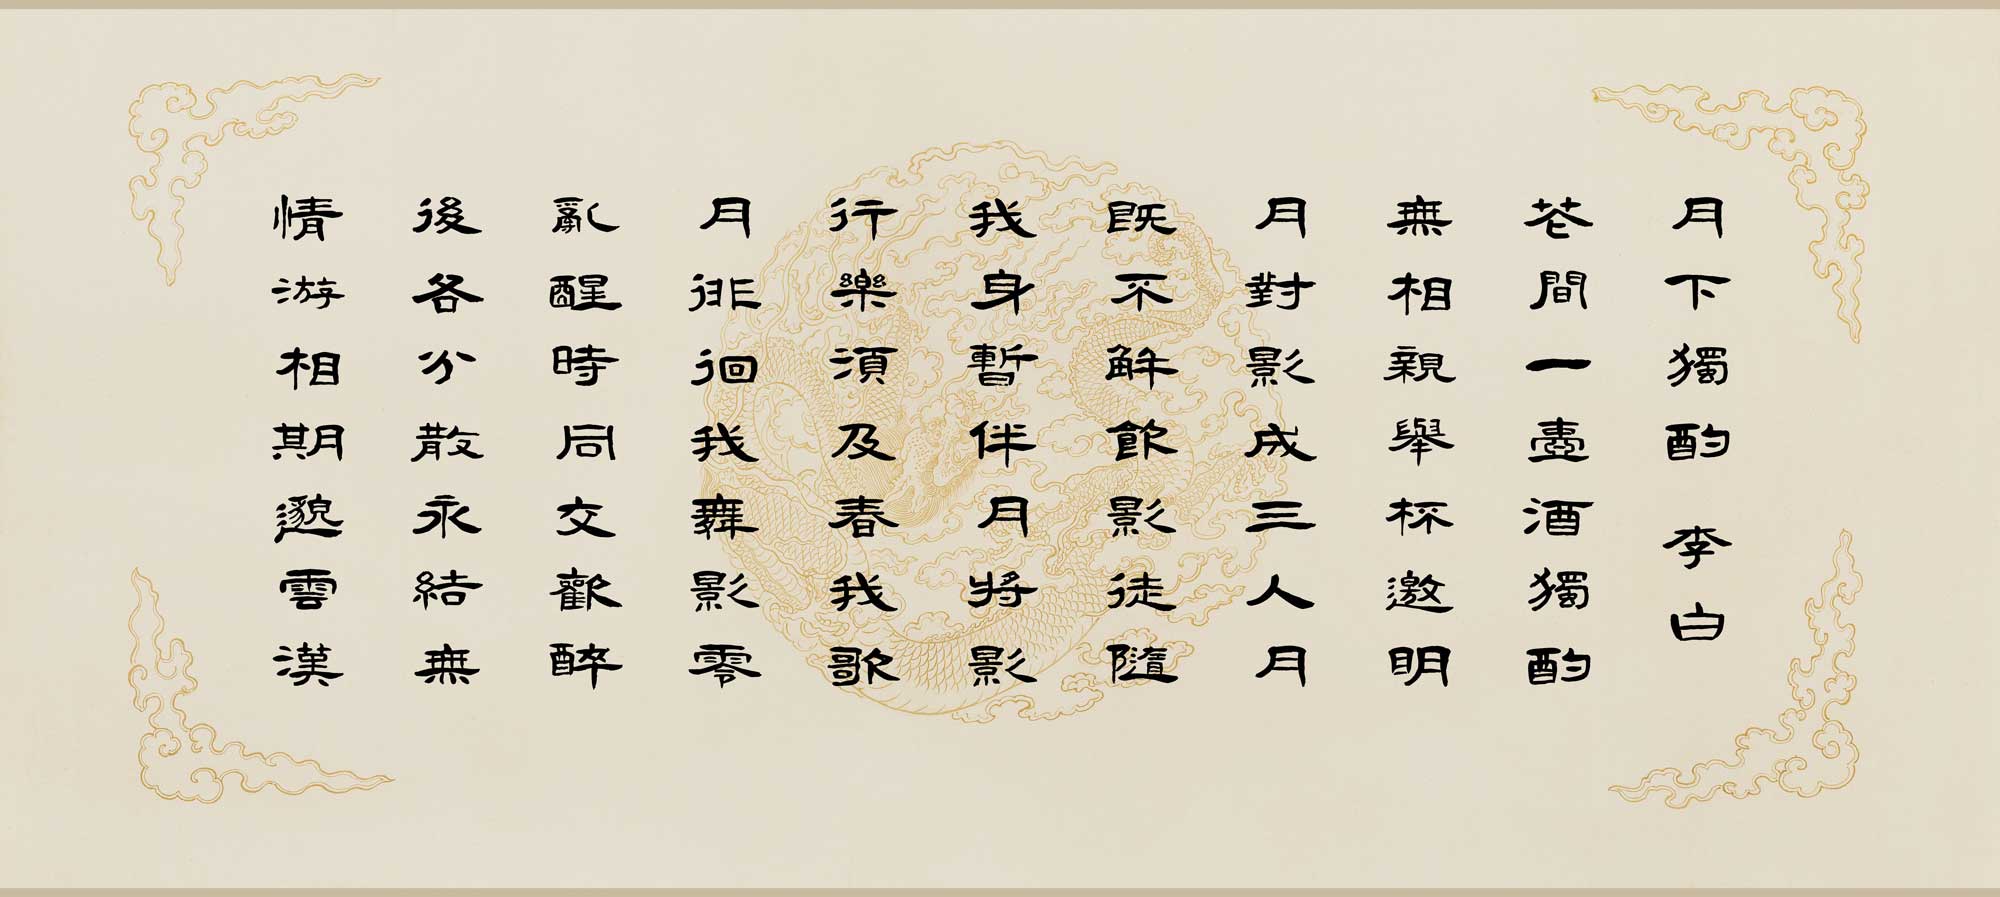 月下獨酌 李白
花間一壺酒獨酌
無相親舉杯邀明
月對影成三人月
既不解飲影徒隨
我身暫伴月將影
行樂須及春我歌
月徘徊我舞影零
亂醒時同交歡醉
後各分散永結無
情游相期邈雲漢